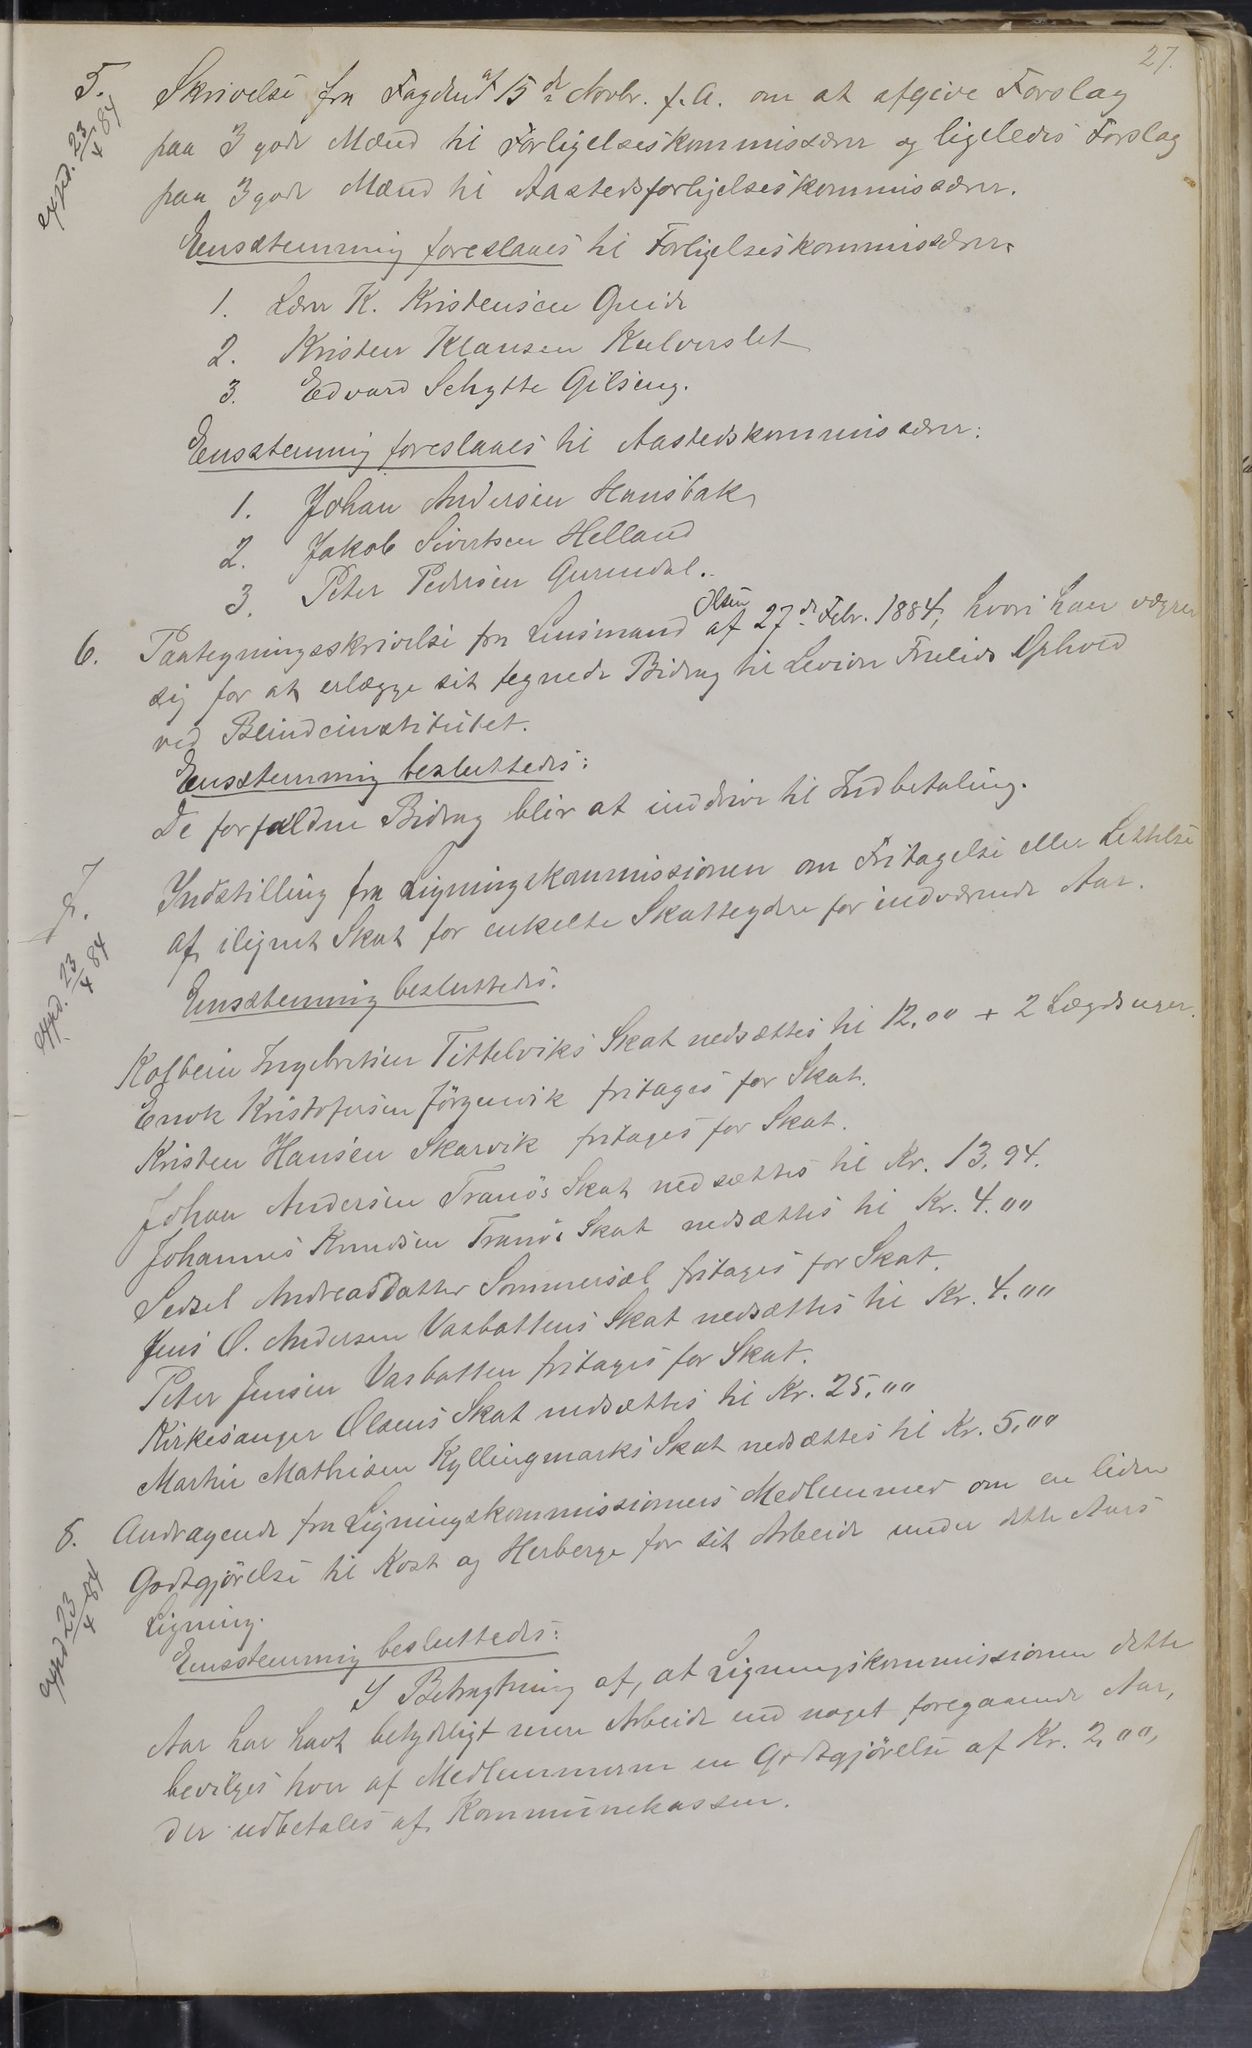 27.
5. Skrivelse fra Fogden af 15de Novbr. f. A. om at afgive Forslag
exped. 23/4 84
paa 3 gode Mænd til Forligelseskommissærer og ligeledes Forslag
paa 3 gode Mænd til Aastedsforligelseskommissærer.
Eensstemmig foreslaaes til Forligelseskommissærer
1. Lærer K. Kristensen
2. Kristen Klausen Kulverslet
3. Edvard Schytte Gilseng.
Eensstemmig foreslaaes til Aastedskommissærer:
1. Johan Andersen Hansbak
2. Jakob Sivertsen Helland
3. Peter Pedersen
6. Paategningsskrivelse fra Lensmand Olsen af 27de Febr. 1884, hvori han vægrer
sig for at erlægge sit tegnede Bidrag til Ophold
ved Blindeinstitutet.
Eensstemmig besluttedes:
De forfaldne Bidrag blir at inddrive til Indbetaling.
7. Indstilling fra Ligningskommissionen om Fritagelse eller Lettelse
exped. 23/4 84
af ilignet Skat for enkelte Skatteydere for indværende Aar.
Eensstemmig besluttedes.
Kolbein Ingebretsen Tittelviks Skat nedsættes til 12,00 + 2 Lægdsuger.
Enok Kristofersen Jörgenvik fritages for Skat.
Kristen Hansen Skarvik fritages for Skat.
Johan Andersen Tranös Skat nedsættes til Kr. 13,94.
Johannes Knudsen Tranös Skat nedsættes til Kr. 4.00
Sedsel Andreasdatter Sommersæl fritages for Skat.
Jens O. Andersen Vasbottens Skat nedsættes til Kr. 4.00
Peter Jensen Vasbotten fritages for Skat.
Kirkesanger Olsens Skat nedsættes til Kr. 25,00
Martin Mathisen Kyllingmarks Skat nedsættes til Kr. 5,00
8. Andragende fra Ligningskommissionens Medlemmer om en liden
Godtgjörelse til Kost og Herberge for sit Arbeide under dette Aars
exped 23/4 84
Ligning.
Eensstemmig besluttedes:
I Betragtning af, at Ligningskommissionen dette
Aar har havt betydeligt mere Arbeide end noget foregaaende Aar,
bevilges hver af Medlemmerne en Godtgjörelse af Kr. 2,00,
der udbetales af Kommunekassen.